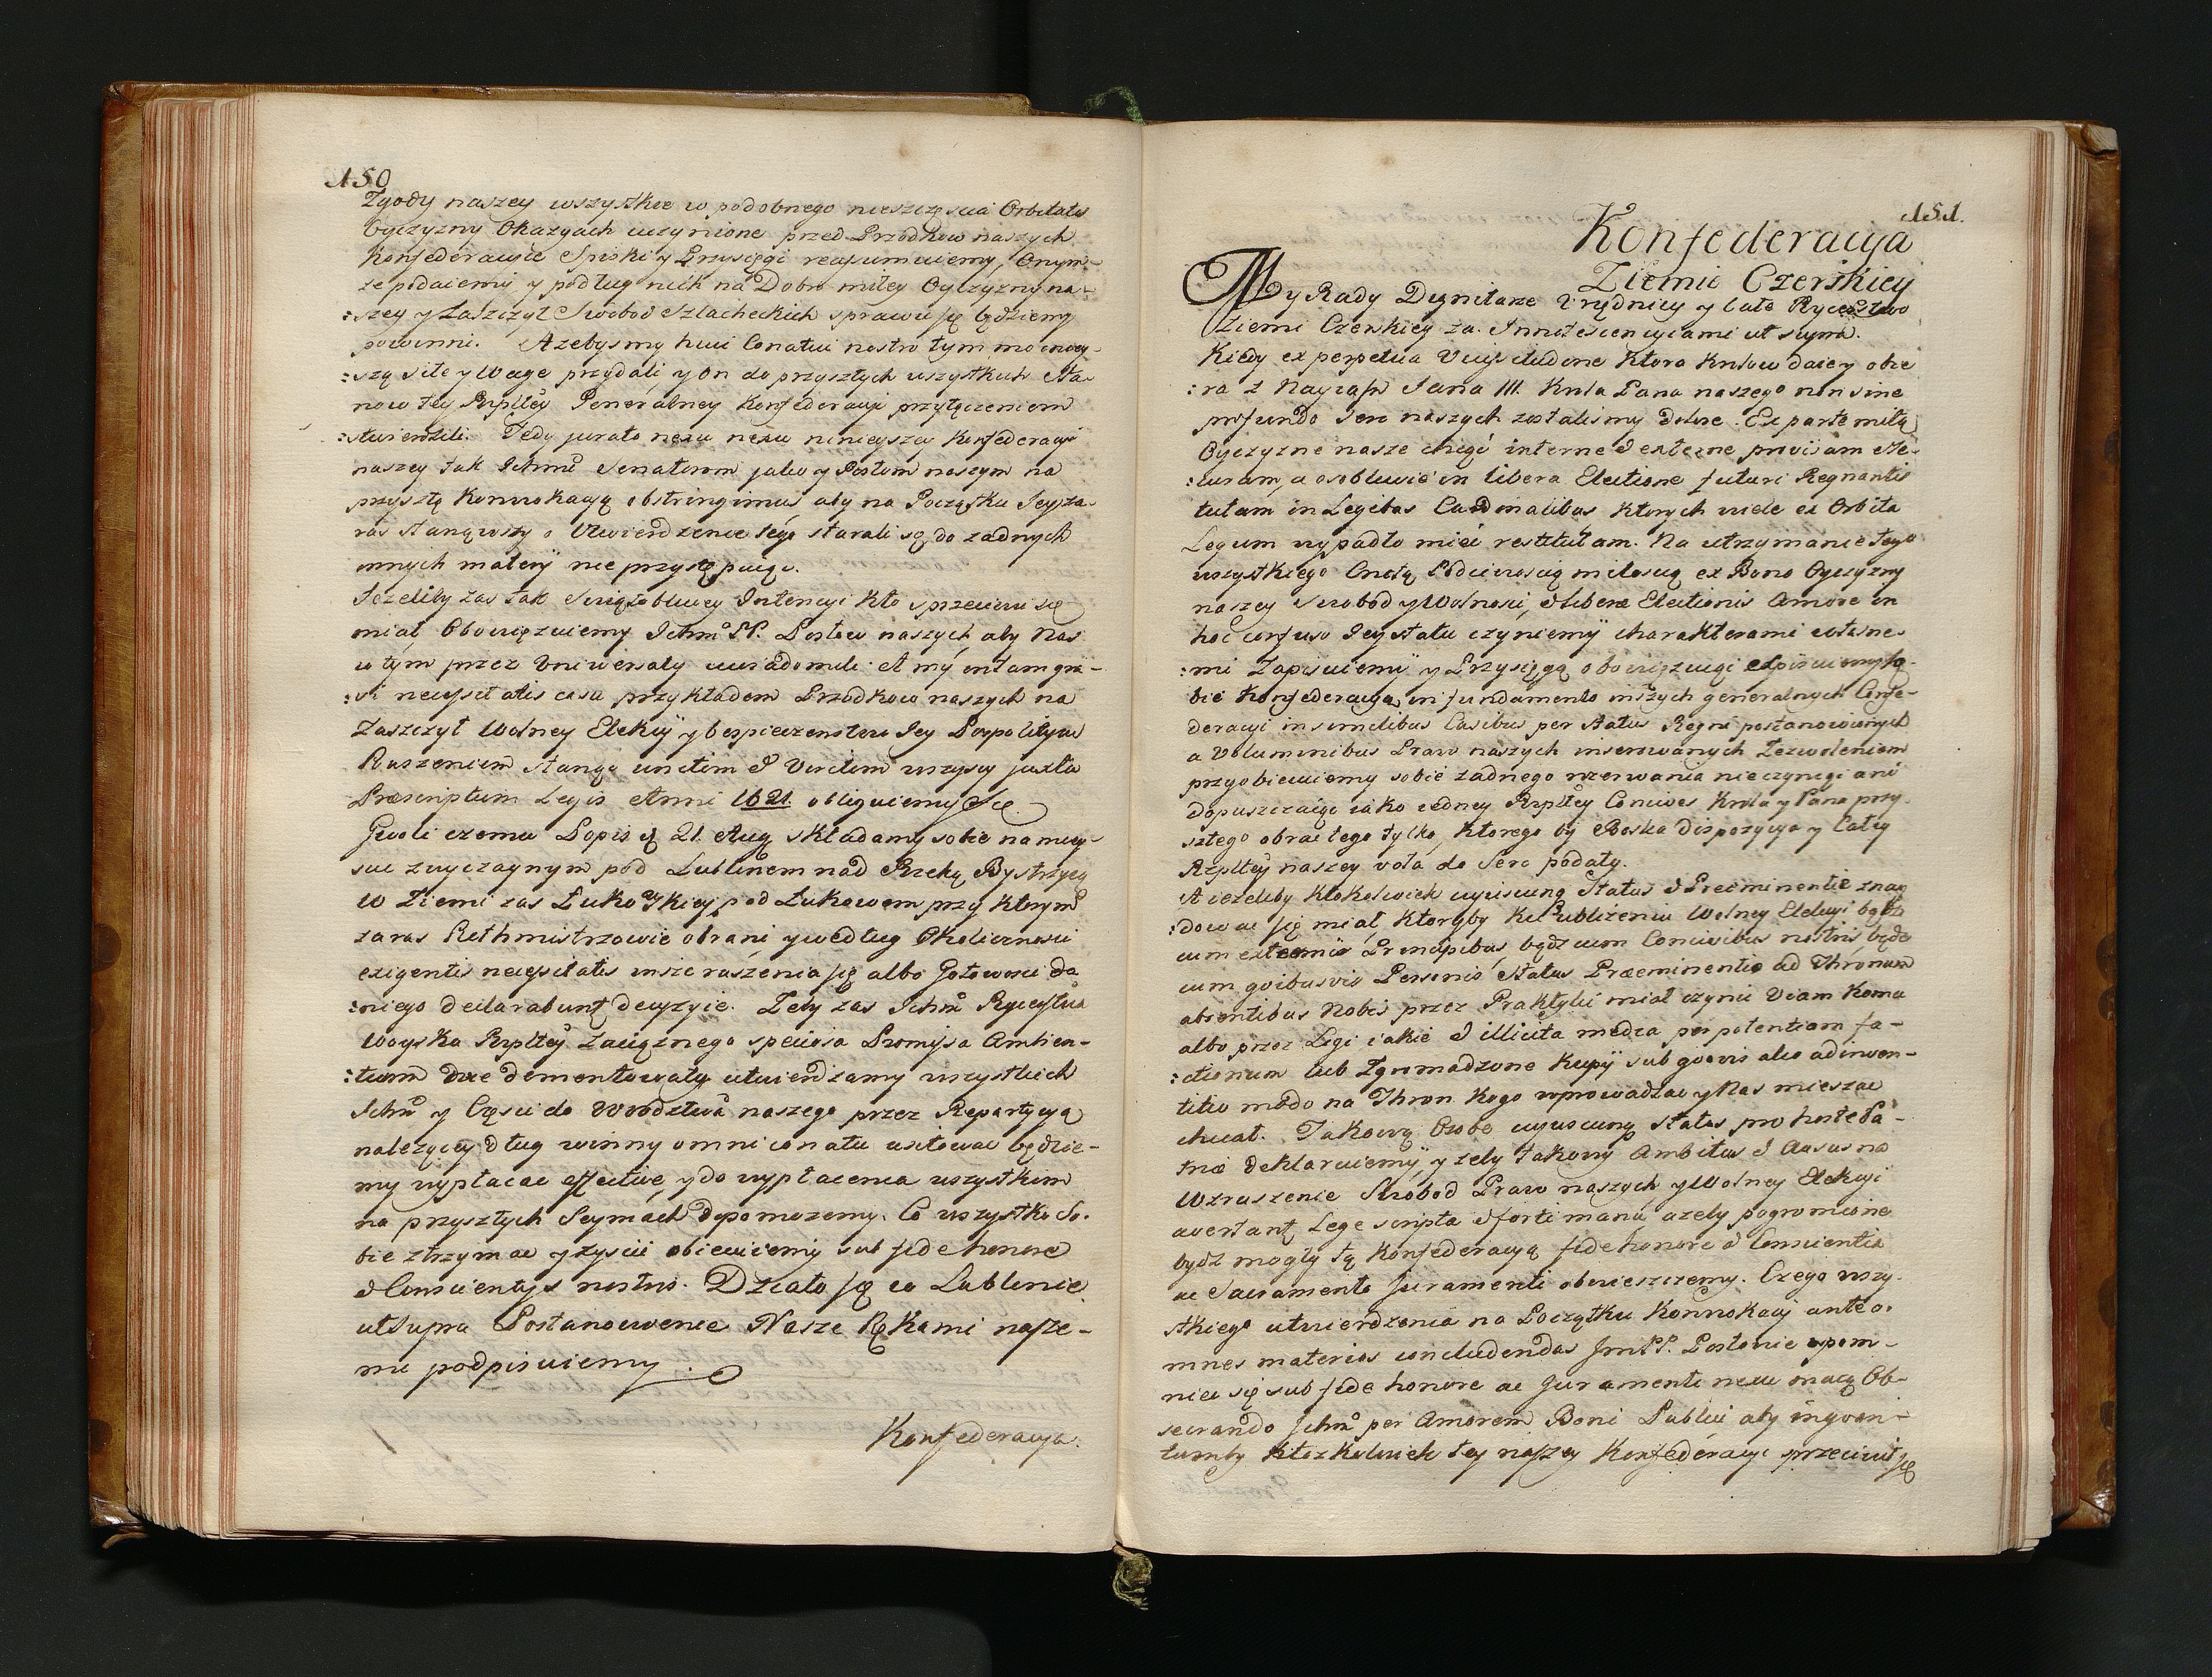 150
Zgody naszey wszystkie w podobnego nieszczęscia Orbitatis
Oyczyzny Okazyach uczynione przed Przodkow naszych
Konfederacyie Spiski y Przysięgi reassumuiemy, Onym-
ze podaiemy y podług nich na Dobro miłey Oyczyzny na-
:szey y Zaszczyt Swobod Szlacheckich sprawić się będziemy
powinni. Azebysmy huic Conatui nostro tym mocniey-
:szą siłę y Wagę przydali y On do przyszłych wszystkich Sta-
now tey Rzpltey Generalney Konfederacyi przyłączeniem
:stwierdzili. Tedy jurato nexu nexu ninieyszey Konfederacyi
naszey tak Ichmć Senatorom jako y Posłom naszym na
przyszłą Konwokacyą obstringimus aby na Początku Sey za-
raz stanąwszy o Utwierdzenie tego starali się do zadnych
innych materyi nie przystępuiąc.
Jezeliby zas tak Swiątobliwey Intencyi kto sprzeciwić się
miał, Obowięzuiemy Ichmć PP. Posłow naszych, aby nas
w tym przez Uniwersały uwiadomili: A my in tam gra-
:vi necessitatis casu przykładem Przodkow naszych na
Zaszczyt Wolney Elekcyi y bespieczenstwo Jey Pospolitym
Ruszeniem stanąć unitim & viritim wszyscy juxta
Præscriptum Legis Anni 1621. obliguiemy Się
Gwoli czemu Popis d 21. Aug składamy sobie na miey-
scu zwyczaynym pod Lublinem nad Rzeką Bystrzycą
W Ziemi zas Łukowskiey pod Łukowem przy ktorym
zaras Rothmistrzowie obrani y według Okolicznosci
exigentis necessitatis insze ruszenia się albo Gotowosci da
:niego declarabunt decyzyie. Zeby zas Ichmć Rycerstwa
Woyska Rzpltey Zaciąznego speciosa Promissa Ambien-
:tium nie dementowały utwierdzamy wszystkich
Ichmć y Części do Wwodztwa naszego przez Repartycyą
nalezącey dług winny omni conatu usiłować będzie-
my wypłacac effective, y do wypłacenia wszystkim
na przyszłych Seymach dopomozemy. Co wszystko So-
bie ztrzymac y zyscić obiecuiemy sub fide honore
& Conscientijs nostris. Działo się w Lublinie
ut supra Postanowienie Nasze Rękami nasze-
mi podpisuiemy.
Konfederacya.
151.
Konfederacya
Ziemi Czerskiey
My Rady Dignitarze Urzędnicy y całe Rycerstwo
Ziemi Czerskiey za Innotescencyiami ut supra.
Kiedy ex perpetua Vicissitudine ktora Krolow daie y obie
:ra z Nayiasn Jana III. Krola Pana naszego non sine
profundo Serc naszych zostalismy dolore. Ex parte miłą
Oyczyznę nasze chcąc interne & externe provisam Se-
:curam, a osobliwie in libera Electione futuri Regnantis
tutam in Legibus Cardinalibus ktorych wiele ex Orbita
Legum wypadło mieć restitutam. Na utrzymanie tego
wszystkiego Cnotą Podciwoscią miłoscią ex Bono Oyczyzny
naszey Swobod y Wolnosci, & liberæ Electionis Amore in
hoc confuso Jey statu czyniemy charakterami własne-
:mi Zapisuiemy y Przysięgą obowięzuiąc opisuiemy so-
bie Konfederacyą, in fundamento inszych generalnych Confe-
deracyi in similibus Casibus per Status Regni postanowionych
a Voluminibus Praw naszych inserowanych Zezwoleniem
przyobiecuiemy sobie zadnego rozerwania nie czyniąc ani
dopuszczaiąc iako iedney Rzpltey Concives Krola y Pana przy-
szłego obrać tego tylko, ktorego by Boska dispozycya y całey
Rzpltey naszey vota do Serc podały.
A iezeliby ktokolwiek cujuscunq Status & Preeminentiæ znay
:dować się miał, ktoryby ku Ubliżeniu Wolney Elekcyi bądz
cum externis Principibus, bądz cum Concivibus nostris bądz
cum quibusvis Personis Status Præeminentis ad Thronum
absentibus Nobis przez Praktyki miał czynić Viam Komu
albo przez Ligi iakie & illicita media per potentiam fa-
:ctionum lub Zgromadzone Kupy sub quovis alio adinven-
titio modo na Thron Kogo wprowadzac y Nas mieszac
chciał. Takową Osobę cujuscunq status pro hoste Pa-
triæ deklaruiemy, y zeby takowy Ambitus & Ausus na
Wzruszenie Swobod Praw naszych y Wolney Elekcyi
avertant Lege scripta & forti manu, azeby pogromione
bydz mogły tę Konfederacyą fide honore & Conscientia
ac Sacramento juramenti obwieszczemy. Czego wszy-
stkiego utwierdzenia na Początku Konwokacyi ante o-
mnes materias concludendas JmPP. Posłowie upom-
niec się sub fide honore ac Juramenti nexu maią Ob-
secrando Ichmć per Amorem Boni Publici aby inquan-
tumby ktozkolwiek tey naszey Konfederacyi przeciwił się